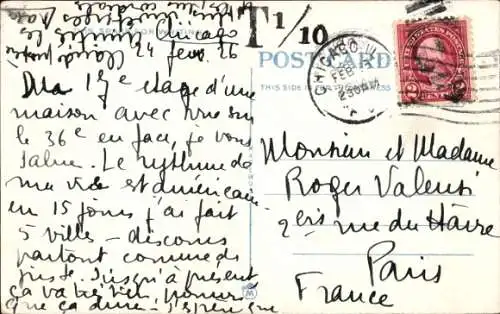 Chicago
24 fevr. 26
T 1/10
POSTCARD
THIS SIDE
CHICAGO, ILL.
FEB
230PM
UNITED STATES POSTAGE
2 CENTS 2
Du 17e etage d'une
maison avec vue sur
le 36e en face, je vous
salue. Le rythme de
ma vie est américain
en 15 jours j'ai fait
5 villes – discours
partout comme de
juste. Jusqu'à présent
ça va très bien, pourvu
que ça dure – J'espère que
Monsieur et Madame
Roger Valensi
2 bis rue du Hâvre
Paris
France